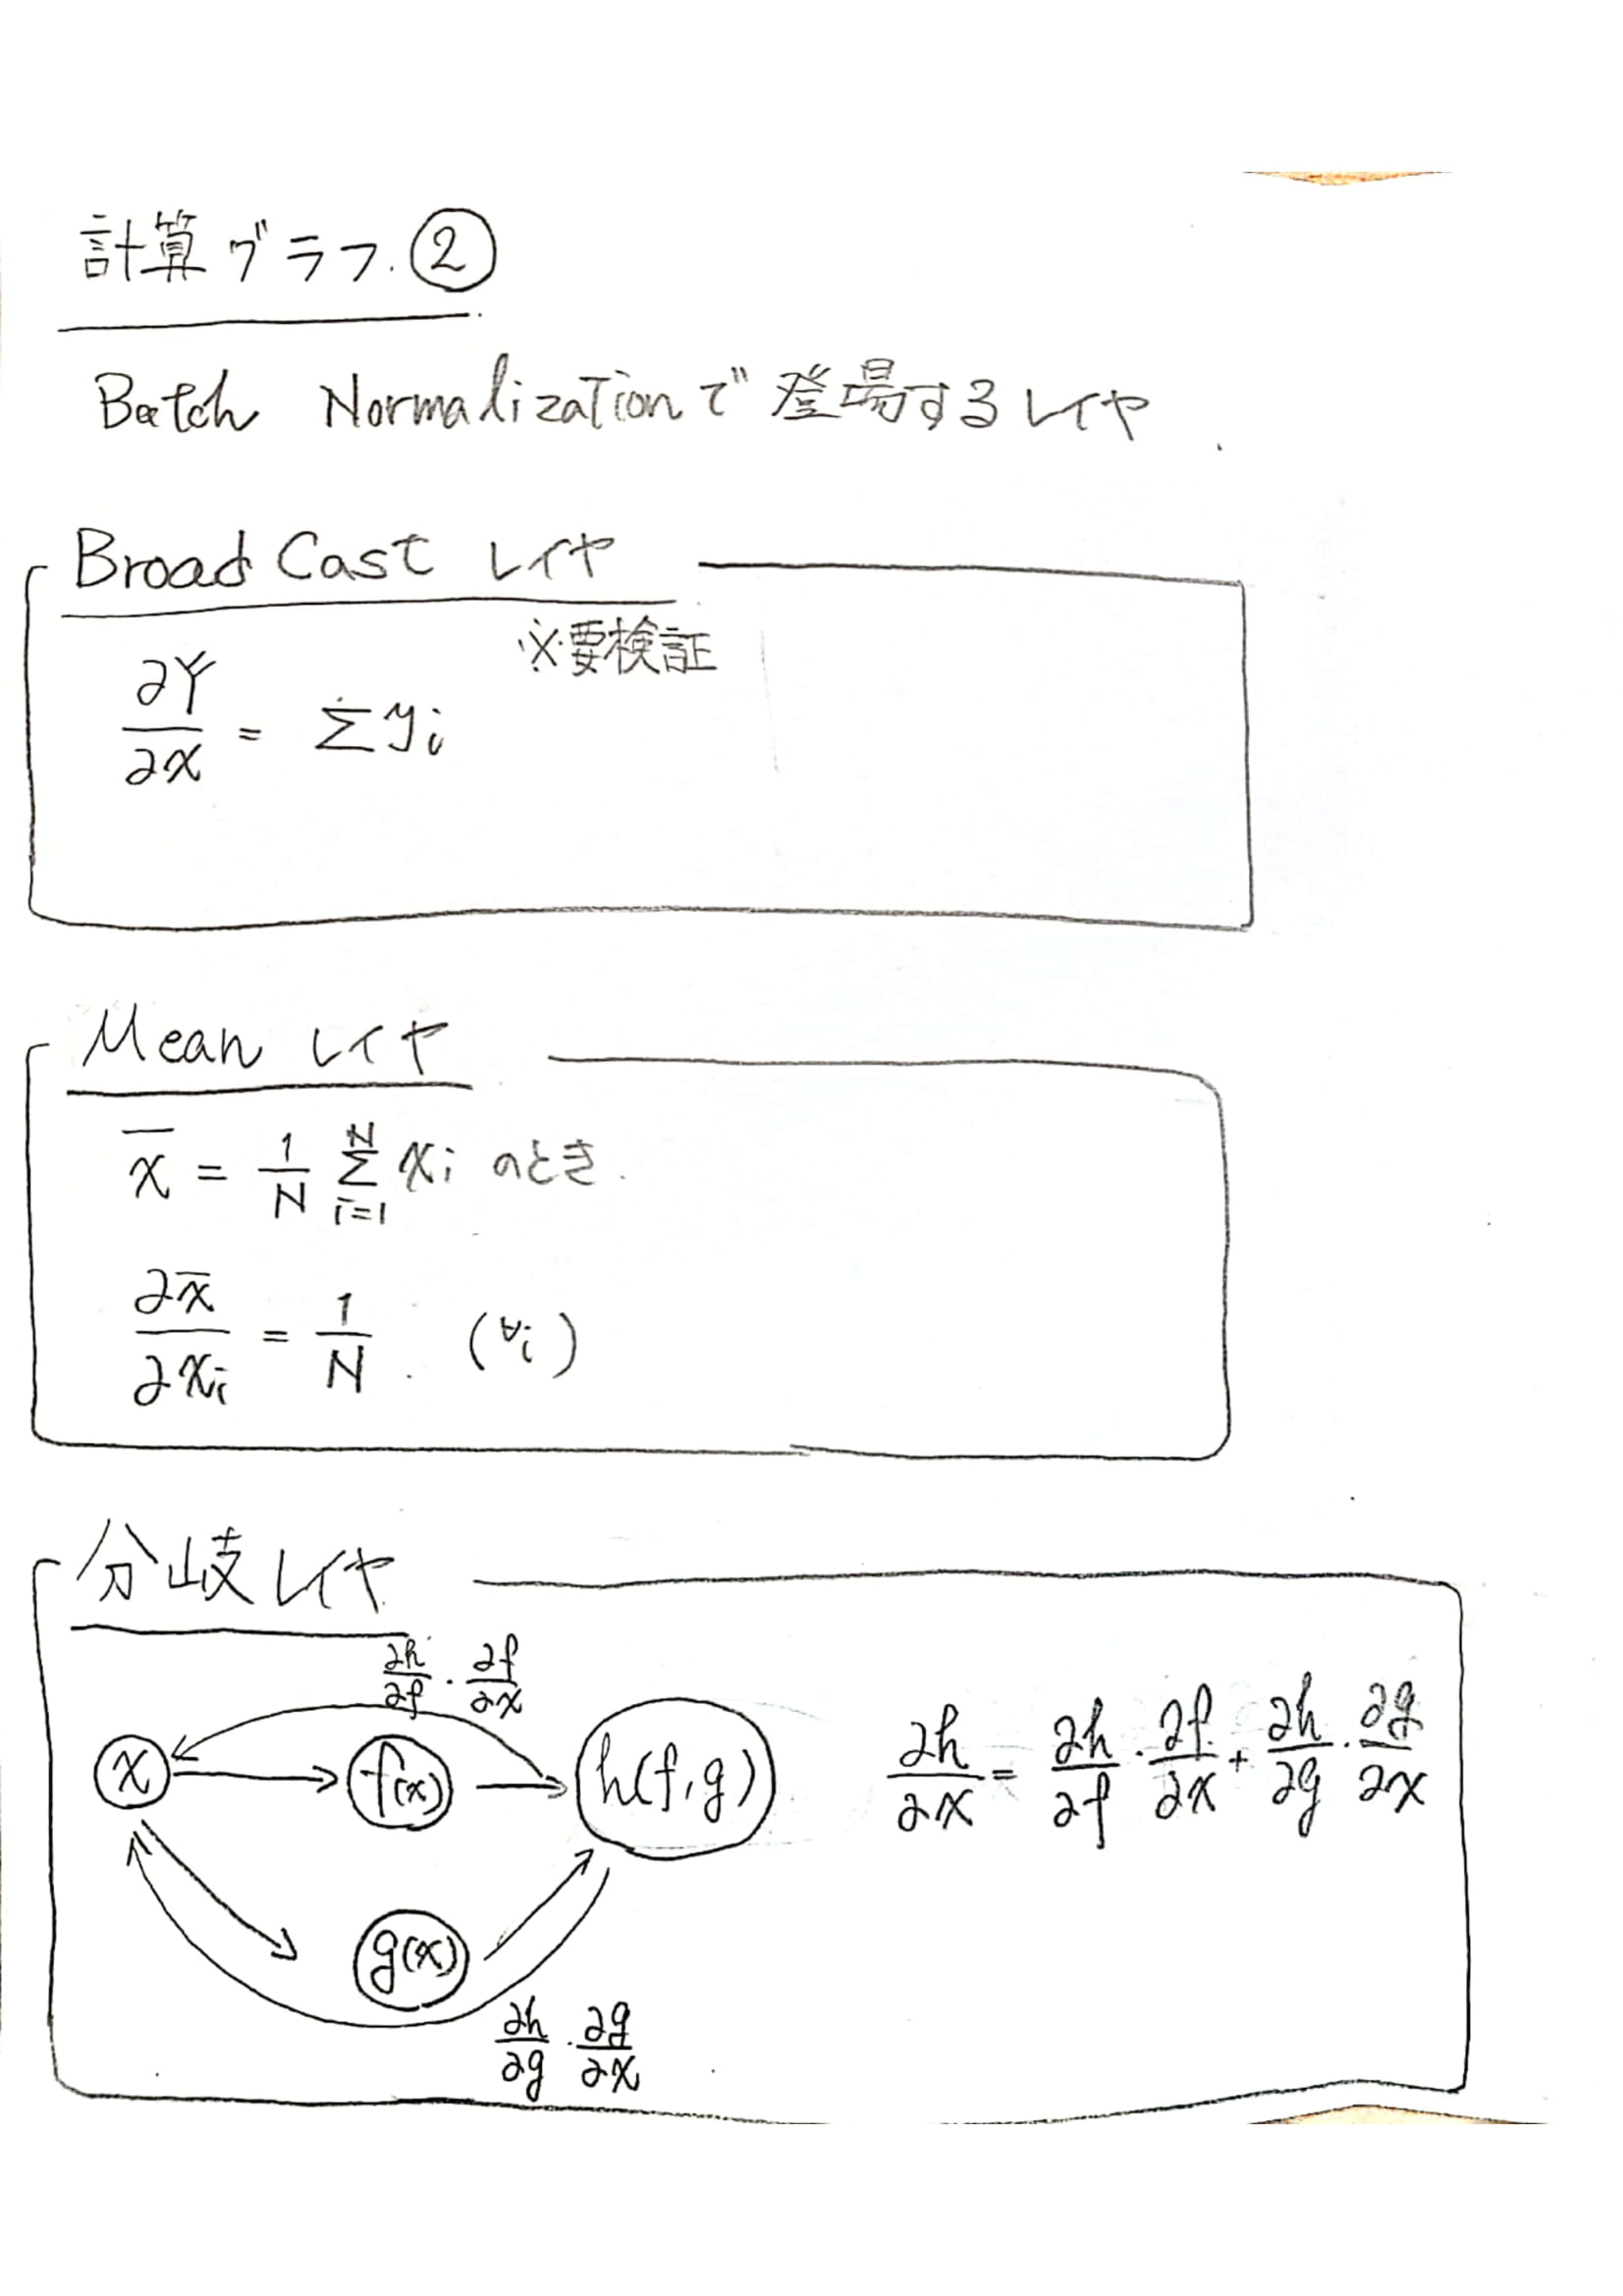 計算グラフ. ②
Batch Normalizationで登場するレイヤ
Broad Cast レイヤ
※要検証
∂Y/∂x = Σyi
Mean レイヤ
x̄ = 1/N Σ_{i=1}^{N} xi のとき.
∂x̄/∂xi = 1/N. (∀i)
分岐レイヤ
∂h/∂f · ∂f/∂x
x f(x) h(f,g)
∂h/∂x = ∂h/∂f · ∂f/∂x + ∂h/∂g · ∂g/∂x
g(x)
∂h/∂g · ∂g/∂x